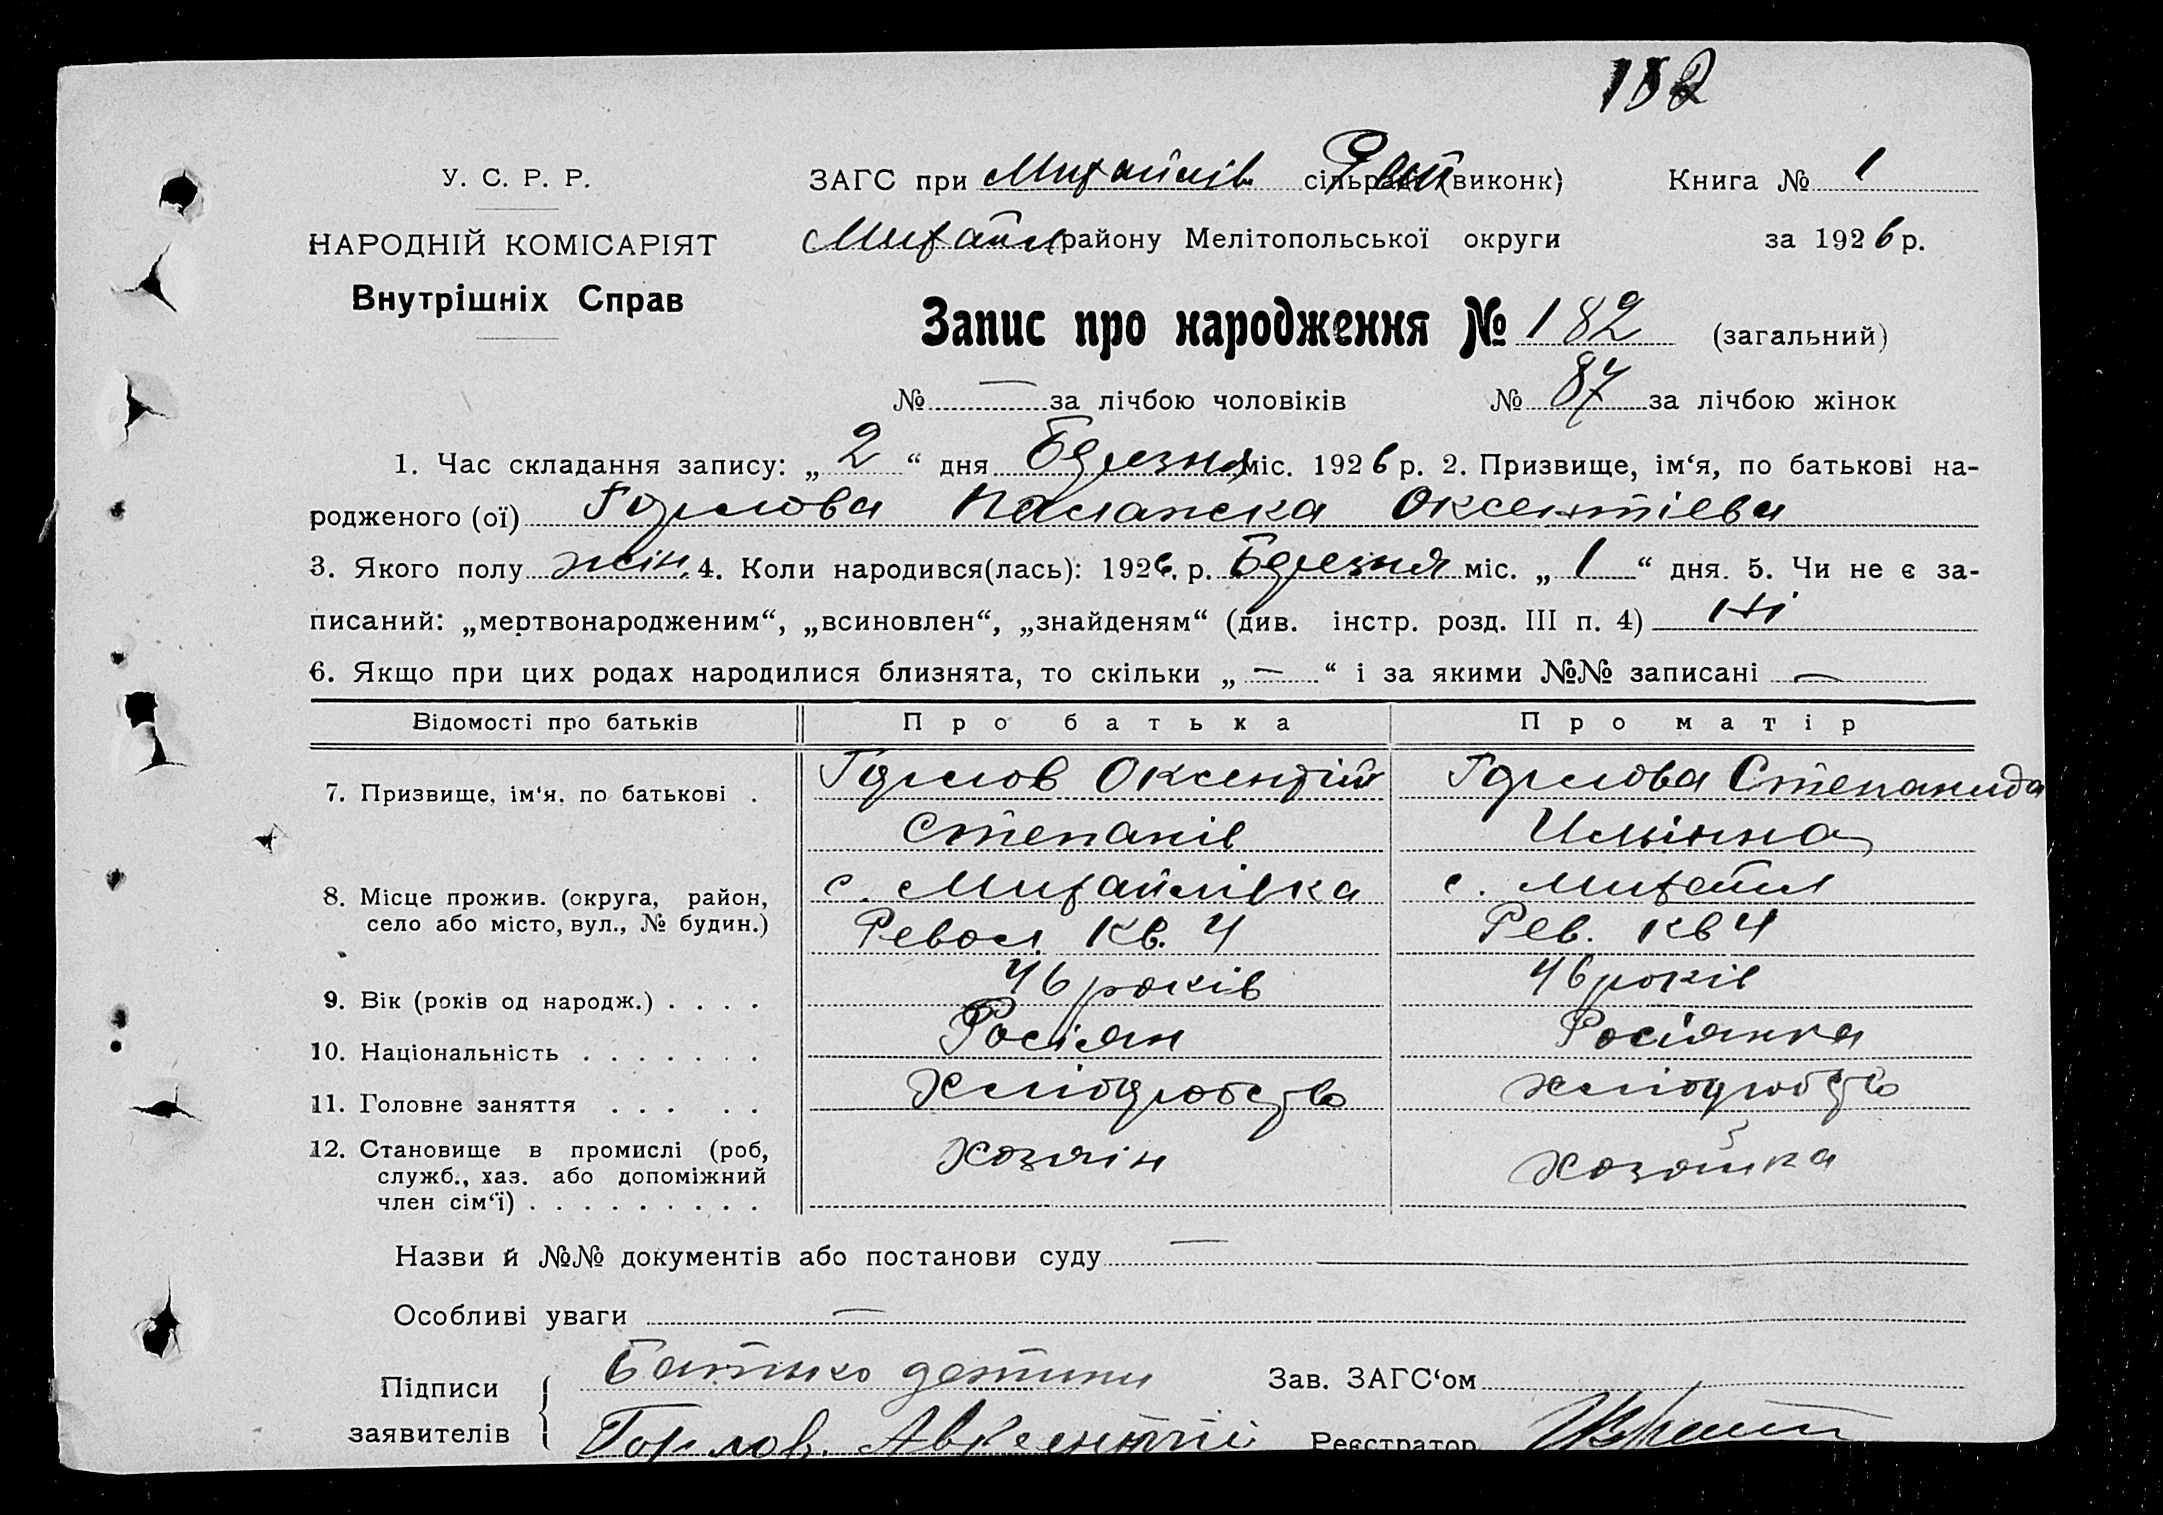 182
У. С. Р. Р.
НАРОДНІЙ КОМІСАРІЯТ
Внутрішніх Справ
ЗАГС при Михайлів сільради (виконк) Книга № 1
Михайл району Мелітопольської округи за 1926 р.
Запис про народження № 182 (загальний)
№ — за лічбою чоловіків № 87 за лічбою жінок
1. Час складання запису: „2“ дня Березня міс. 1926 р. 2. Призвище, ім‘я, по батькові на-
родженого (ої) Горлова Палажка Оксентіева
3. Якого полу жін. 4. Коли народився(лась): 1926. р. Березня міс. „1“ дня. 5. Чи не є за-
писаний: „мертвонародженим“, „всиновлен“, „знайденям“ (див. інстр. розд. III п. 4) Ні
6. Якщо при цих родах народилися близнята, то скільки „—“ і за якими №№ записані —
Відомості про батьків Про батька Про матір
7. Призвище, ім‘я, по батькові . Горлов Оксентій Горлова Степанида
Степанів Ильінна
8. Місце прожив. (округа, район, с. Михайлівка с. Михайл
село або місто, вул., № будин.) Револ. Кв. 4 Рев. Кв 4
9. Вік (років од народж.) . . . . 46 років 46 років
10. Національність . . . . . . . Росіян Росіянка
11. Головне заняття . . . . . Хліборобство хліборобство
12. Становище в промислі (роб, Хозяін Хозяйка
служб., хаз. або допоміжний
член сім‘ї) . . . . . . . . .
Назви й №№ документів або постанови суду —
Особливі уваги —
Підписи Батько дотини Зав. ЗАГС‘ом
заявителів Горлов. Авксентій Реєстратор